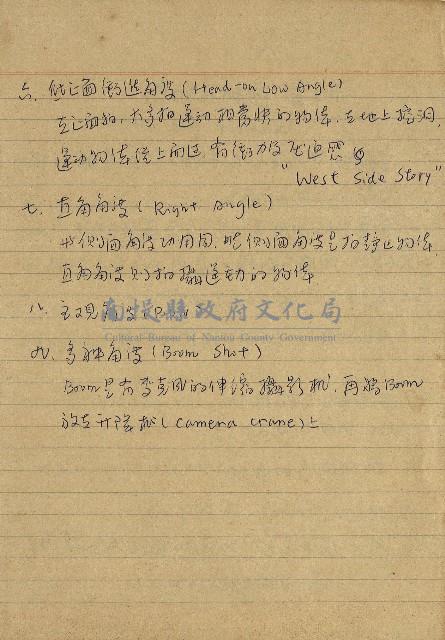 六、低正面衝進角度(Head-on Low Angle)
在正面拍,大多拍運動很快的物体,在地上挖洞,
運動物体從上面过,有衝力及压迫感
"West Side Story"
七、直角角度(Right Angle)
和側面角度功用同,唯側面角度是拍静止物体,
直角角度則拍攝運動的物体
八、主观角度
南投縣政府文化局
Cultural Bureau of Nantou County Government
九、多種角度(Boom Shot)
Boom是有麥克風的伸縮攝影机,再將Boom
放在升降机(camera crane)上